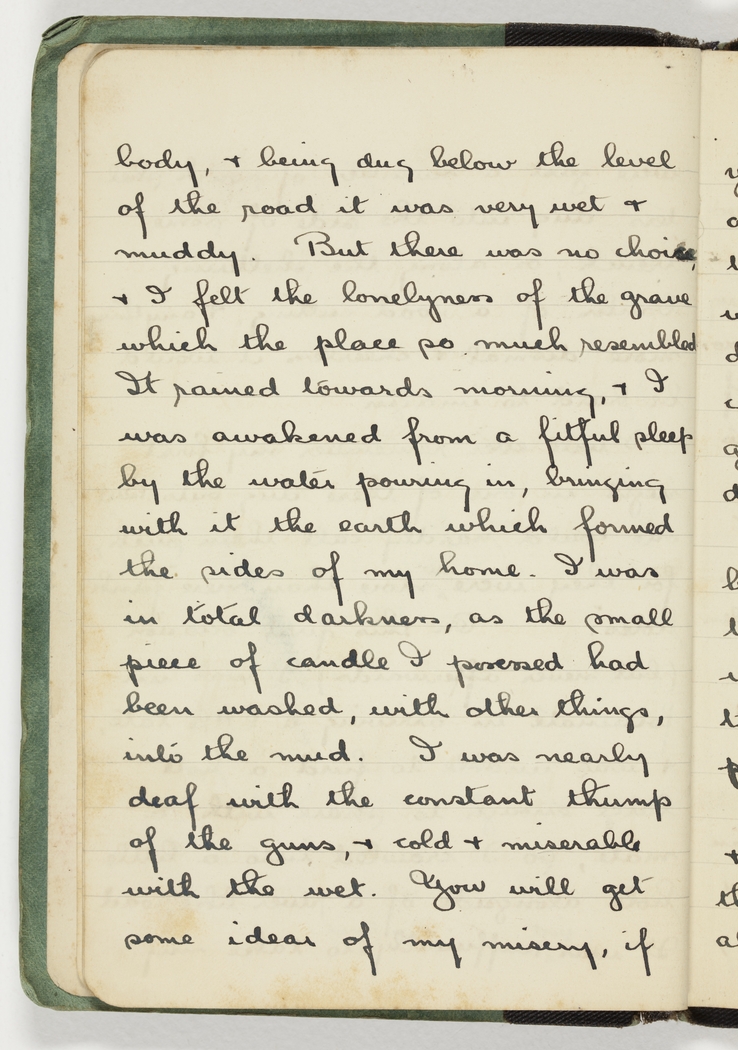 body, + being dug below the level
of the road it was very wet +
muddy. But there was no choice,
+ I felt the lonelyness of the grave
which the place so much resembled
It rained towards morning, + I
was awakened from a fitful sleep
by the water pouring in, bringing
with it the earth which formed
the sides of my home. I was
in total darkness, as the small
piece of candle I posessed had
been washed, with other things,
into the mud. I was nearly
deaf with the constant thump
of the guns, + cold + miserable
with the wet. You will get
some idear of my misery, if